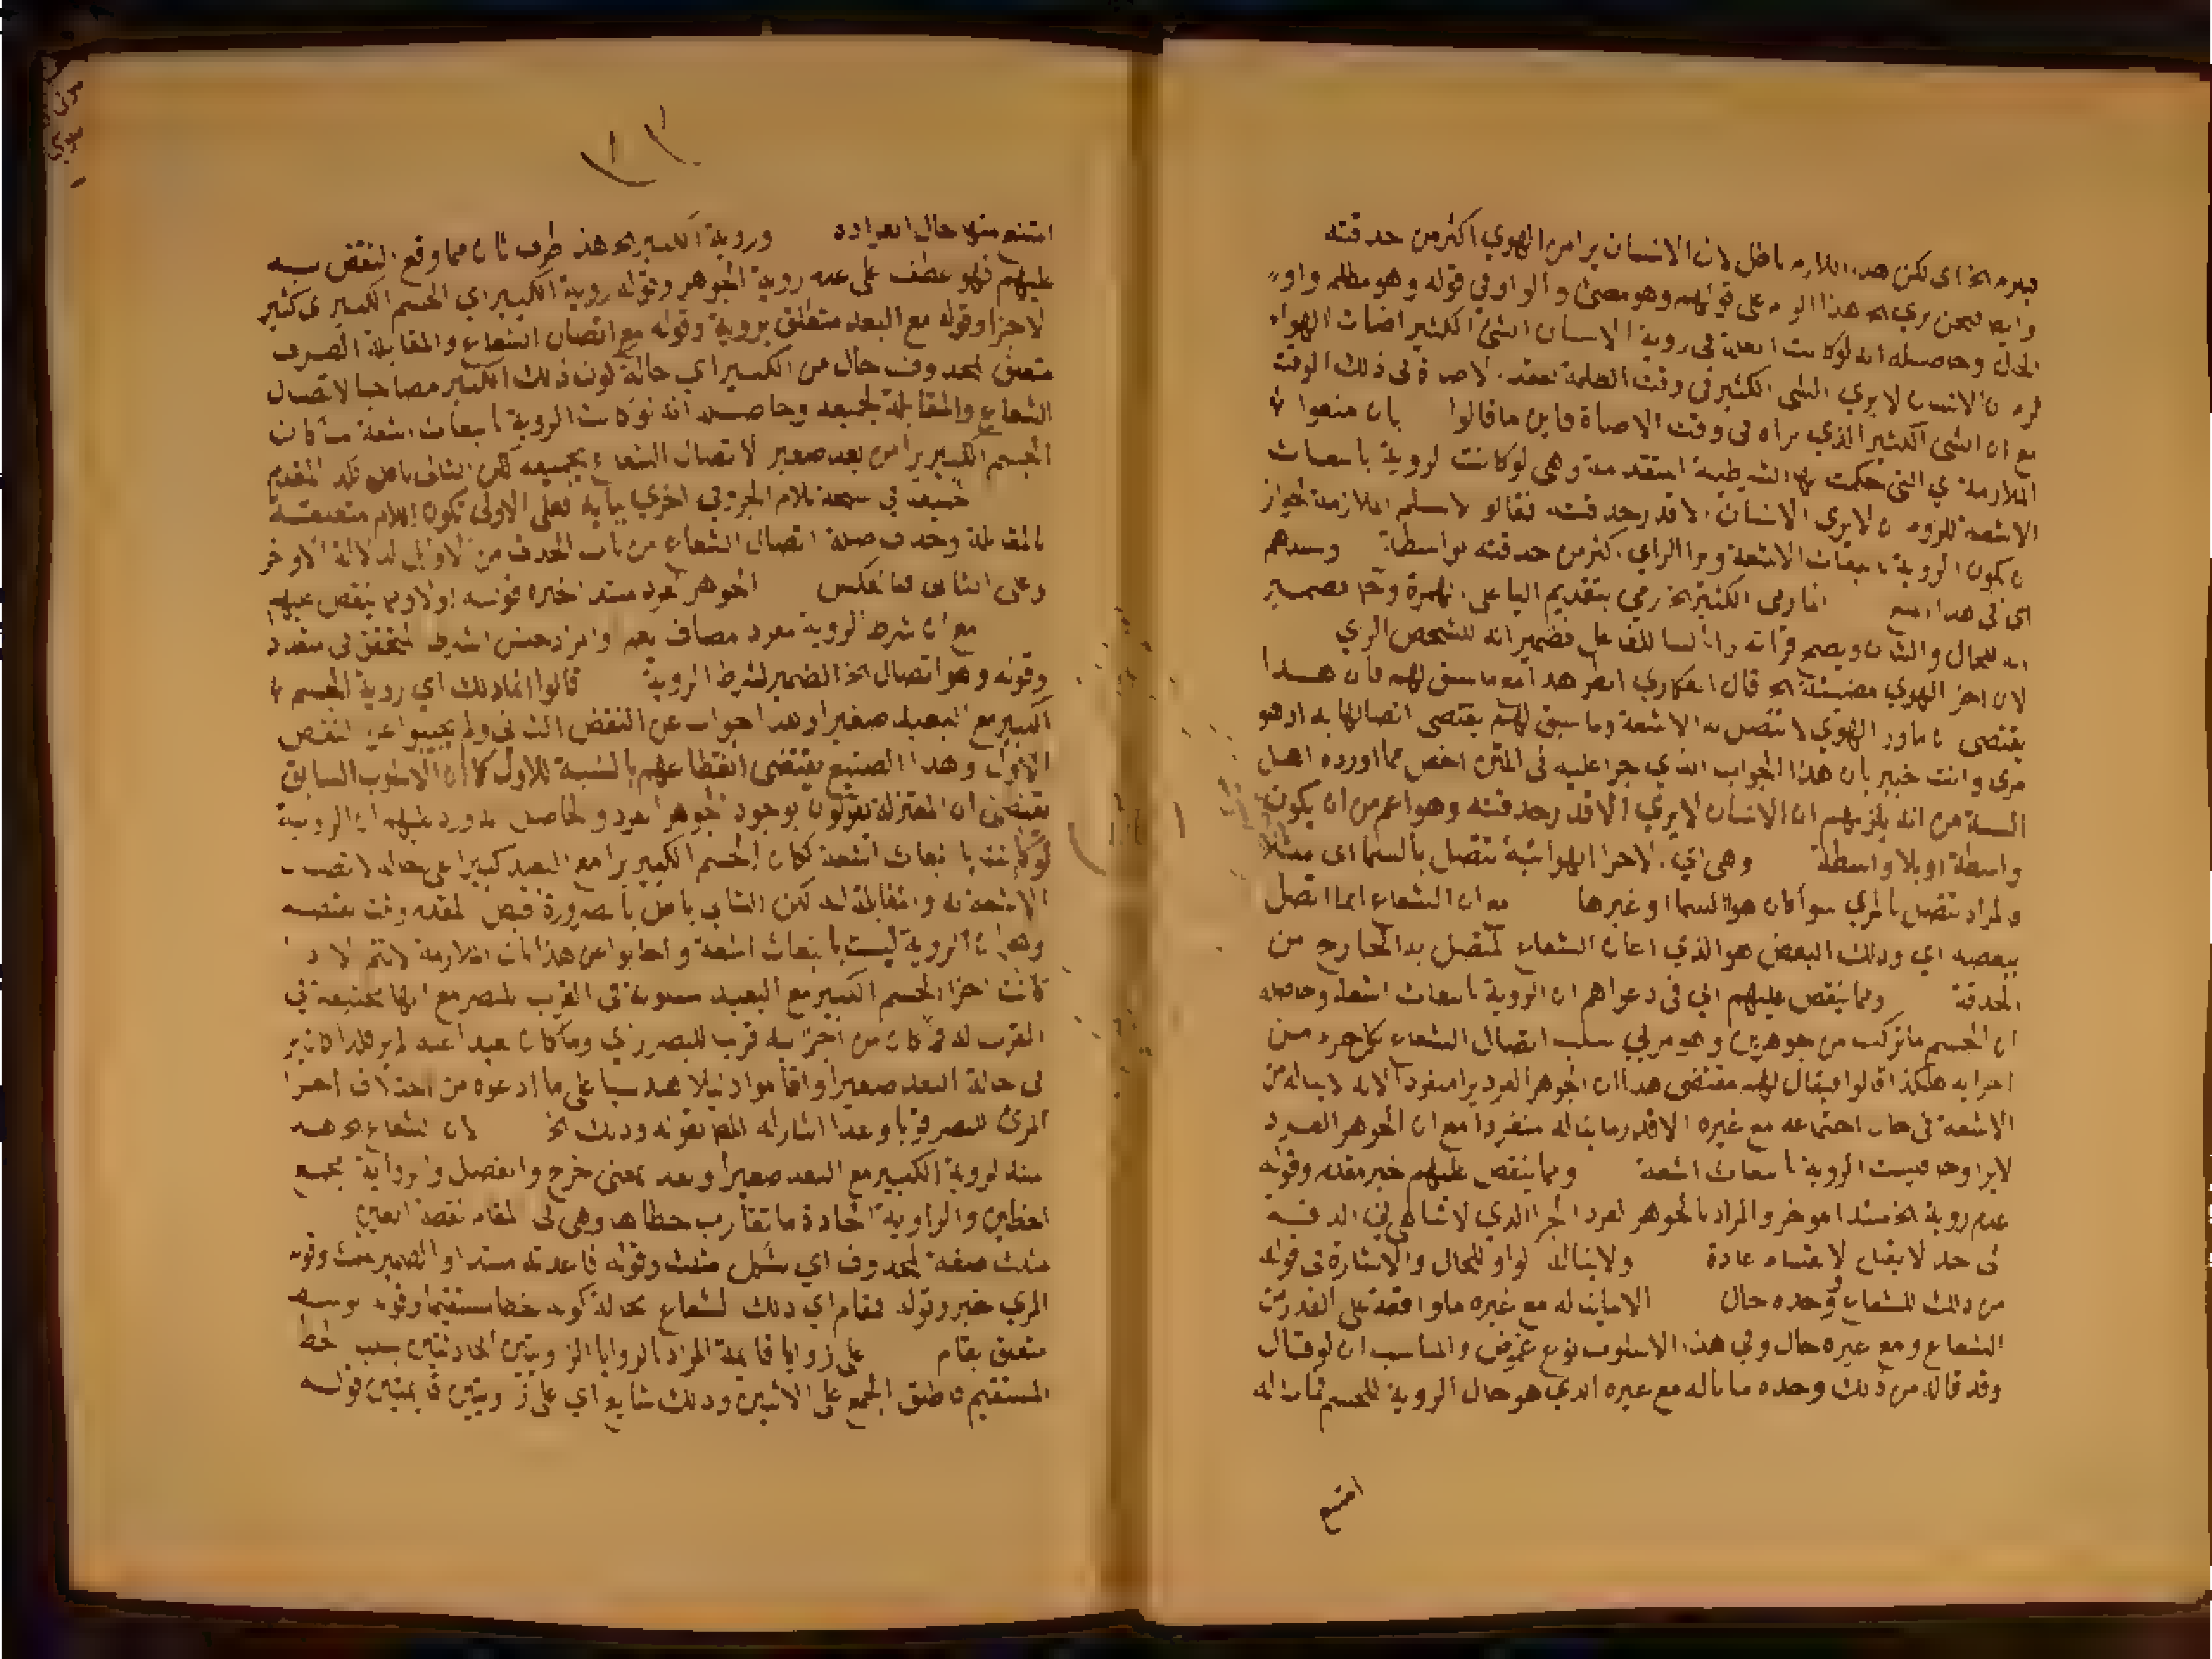 لان الانسان يرا من الهوي اكثر من حدقته
وايضا فنحن نري الخ هذا الرد على قولهم وهو مضئ والواو في قوله وهو مظلم واو
الحال وحاصله انه لو كانت العلة في روية الانسان الشئ الكثير اضات الهواء
لزم ان الانسان لا يري الشئ الكثير في وقت الظلمة لفقد الاضاة في ذلك الوقت
مع ان الشئ الكثير الذي يراه في وقت الاضاة فاين ما قالوا بان منعوا
الملازمة اي التي حكمت بها الشرطية المتقدمة وهي لو كانت الروية بانبعاث
الاشعة للزم ان لا يري الانسان الا قدر حدقته فقالو لا نسلم الملازمة لجواز
ان تكون الروية بانبعاث الاشعة ويرا الراي اكثر من حدقته بواسطة وسندهم
اي في هذا المنع انما رمي الكثير الخ رمي بتقديم اليا على الهمزة
للشخص الري
لان اجزا الهوي مضيئة الخ قال العكاري انظر هذا مع ما سبق لهم فان هذا
يقتضي ان ما ورا الهوي لا تتصل به الاشعة وما سبق لهم يقتضي اتصالها به اذ هو
مري وانت خبير بان هذا الجواب الذي جرا عليه في المتن اخص مما اورده اهل
السنة من انه يلزمهم ان الانسان لا يري الا قدر حدقته وهو اعم من ان يكون
واسطة او بلا واسطة وهي اي الاجزا الهوائية تتصل بالسما اي مثلا
والمراد تتصل بالمري سوا كان هو السما او غيرها مع ان الشعاع انما اتصل
ببعضه اي وذلك البعض هو الذي اعان الشعاع المتصل به الخارج من
الحدقة ومما ينقض عليهم اي في دعواهم ان الروية بانبعاث اشعة وحاصله
ان الجسم ما تركب من جوهرين وهو مري بسبب اتصال الشعاع بكل جزء من
اجزايه هكذا قالوا فيقال لهم مقتضى هذا ان الجوهر الفرد يرا منفردا لانه لا يناله من
الاشعة في حال اجتماعه مع غيره الا قدر ما يناله منفردا مع ان الجوهر الفرد
لا يرا وحده فليست الروية بانبعاث اشعة ومما ينقض عليهم خبر مقدم وقوله
عدم روية الخ مبتدا موخر والمراد بالجوهر الفرد الجزا الذي لا تناهى في الدقة
الى حد لا يقبل الانقسام عادة ولا يناله الواو للحال والاشارة في قوله
من ذلك للشعاع وحده حال الا ما يناله مع غيره ما واقعة على القدر من
الشعاع ومع غيره حال وفي هذا الاسلوب نوع غموض والمناسب ان لو قال
وقد قاله من ذلك وحده ما ناله مع غيره الذي هو حال الروية للجسم
امتنع
امتنع منها حال انفراده وروية الكبير الخ هذا طرف ثان مما وقع النقض به
عليهم فهو عطف على عدم روية الجوهر وقوله روية الكبير اي الجسم الكبير اي كثير
الاجزا وقوله مع البعد متعلق بروية وقوله مع اتصال الشعاع والمقابلة الصرف
متعلق بمحذوف حال من الكبير اي حالة كون ذلك الكبير مصاحبا لاتصال
الشعاع والمقابلة لجميعه وحاصله انه لو كانت الروية بانبعاث اشعة ما كان
الجسم الكبير يرا من بعد صغير لاتصال الشعاع بجميعه لكن التالي باطل فكذا المقدم
لجميعه في نسخة بلام الجر وفي اخري ببايه فعلى الاولى تكون اللام متعلقة
بالمقابلة وحذف صلة اتصال الشعاع من باب الحذف من الاوايل لدلالة الاواخر
وعلى الثاني فبالعكس الجوهر الفرد مبتدا خبره قوله
مع ان شرط الروية مفرد مضاف يعم
وقوله وهو اتصال الخ الضمير لشرط الروية قالوا انما ذلك اي روية الجسم
الكبير مع البعيد صغيرا وهذا جواب عن النقض الثاني ولم يجيبوا عن النقض
الاول وهذا الصنيع يقتضي انقطاعهم بالنسبة للاول كما ان الاسلوب السابق
يقتضي ان المعتزلة يقولون بوجود الجوهر الفرد والحاصل انه ورد عليهم ان الروية
لو كانت بانبعاث اشعة لكان الجسم الكبير يرا مع البعيد كبيرا على حاله لاتصال
الاشعة به والمقابلة له لكن التالي باطل بالضرورة فبطل المقدم وثبت نقيضه
وهو ان الروية ليست بانبعاث اشعة واجابوا عن هذا بان الملازمة لا تتم الا اذا
كانت اجزا الجسم الكبير مع البعيد مستوية في القرب للبصر مع انها مختلفة في
القرب له فما كان من اجزايه قرب للبصر رئي وما كان بعيدا عنه لم ير
في حالة البعد صغيرا واقاموا دليلا هندسيا على ما ادعوه من اختلاف اجزا
المرئ للبصر قربا وبعدا اشار له المص بقوله وذلك الخ لان الشعاع الخ هذا
سند لروية الكبير مع البعد صغيرا ونفذ بمعنى خرج وانفصل والزاوية مجمع
الخطين والزاوية الحادة ما تقارب خطاها وهي في المقام نقطة العين
مثلث صفة لمحذوف اي شكل مثلث وقوله قاعدته مبتدا والضمير للمثلث وقوله
المري خبر وقوله فقام اي ذلك الشعاع بحالة كونه خطا مستقيما وقوله بوسطه
متعلق بقام على زوايا قايمة المراد بالزوايا الزاويتين الحادثتين بسبب الخط
المستقيم فاطلق الجمع على الاثنين وذلك شايع اي على زاويتين قايمتين قوله